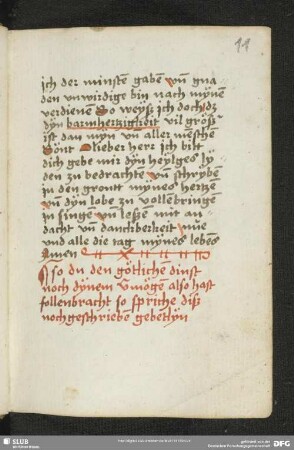 11
ich der minsten̄ gaben vn̄ gna
den vnwirdige bin nach mynen̄
verdienē So weyß ich doch dz
dyn barmhertzigkeit vil größ
ist dan myn vn̄ aller mēsche
Sönt O lieber herr ich bitt
dich gebe mir dyn heylges ly
den zu bedrachtē vn̄ schrybē
in den grontt mynes hertzē
vn̄ dyn lobe zu vollēbringē
zu singen̄ vn̄ leße mit an
dacht vn̄ danckberheit
vnd alle die tag mynes lebēs
Amen
so du den götlichē dinst
noch dynem vmögē also hast
follenbracht so spriche diß
nochgeschriebē gebethyn
SLUB
DFG